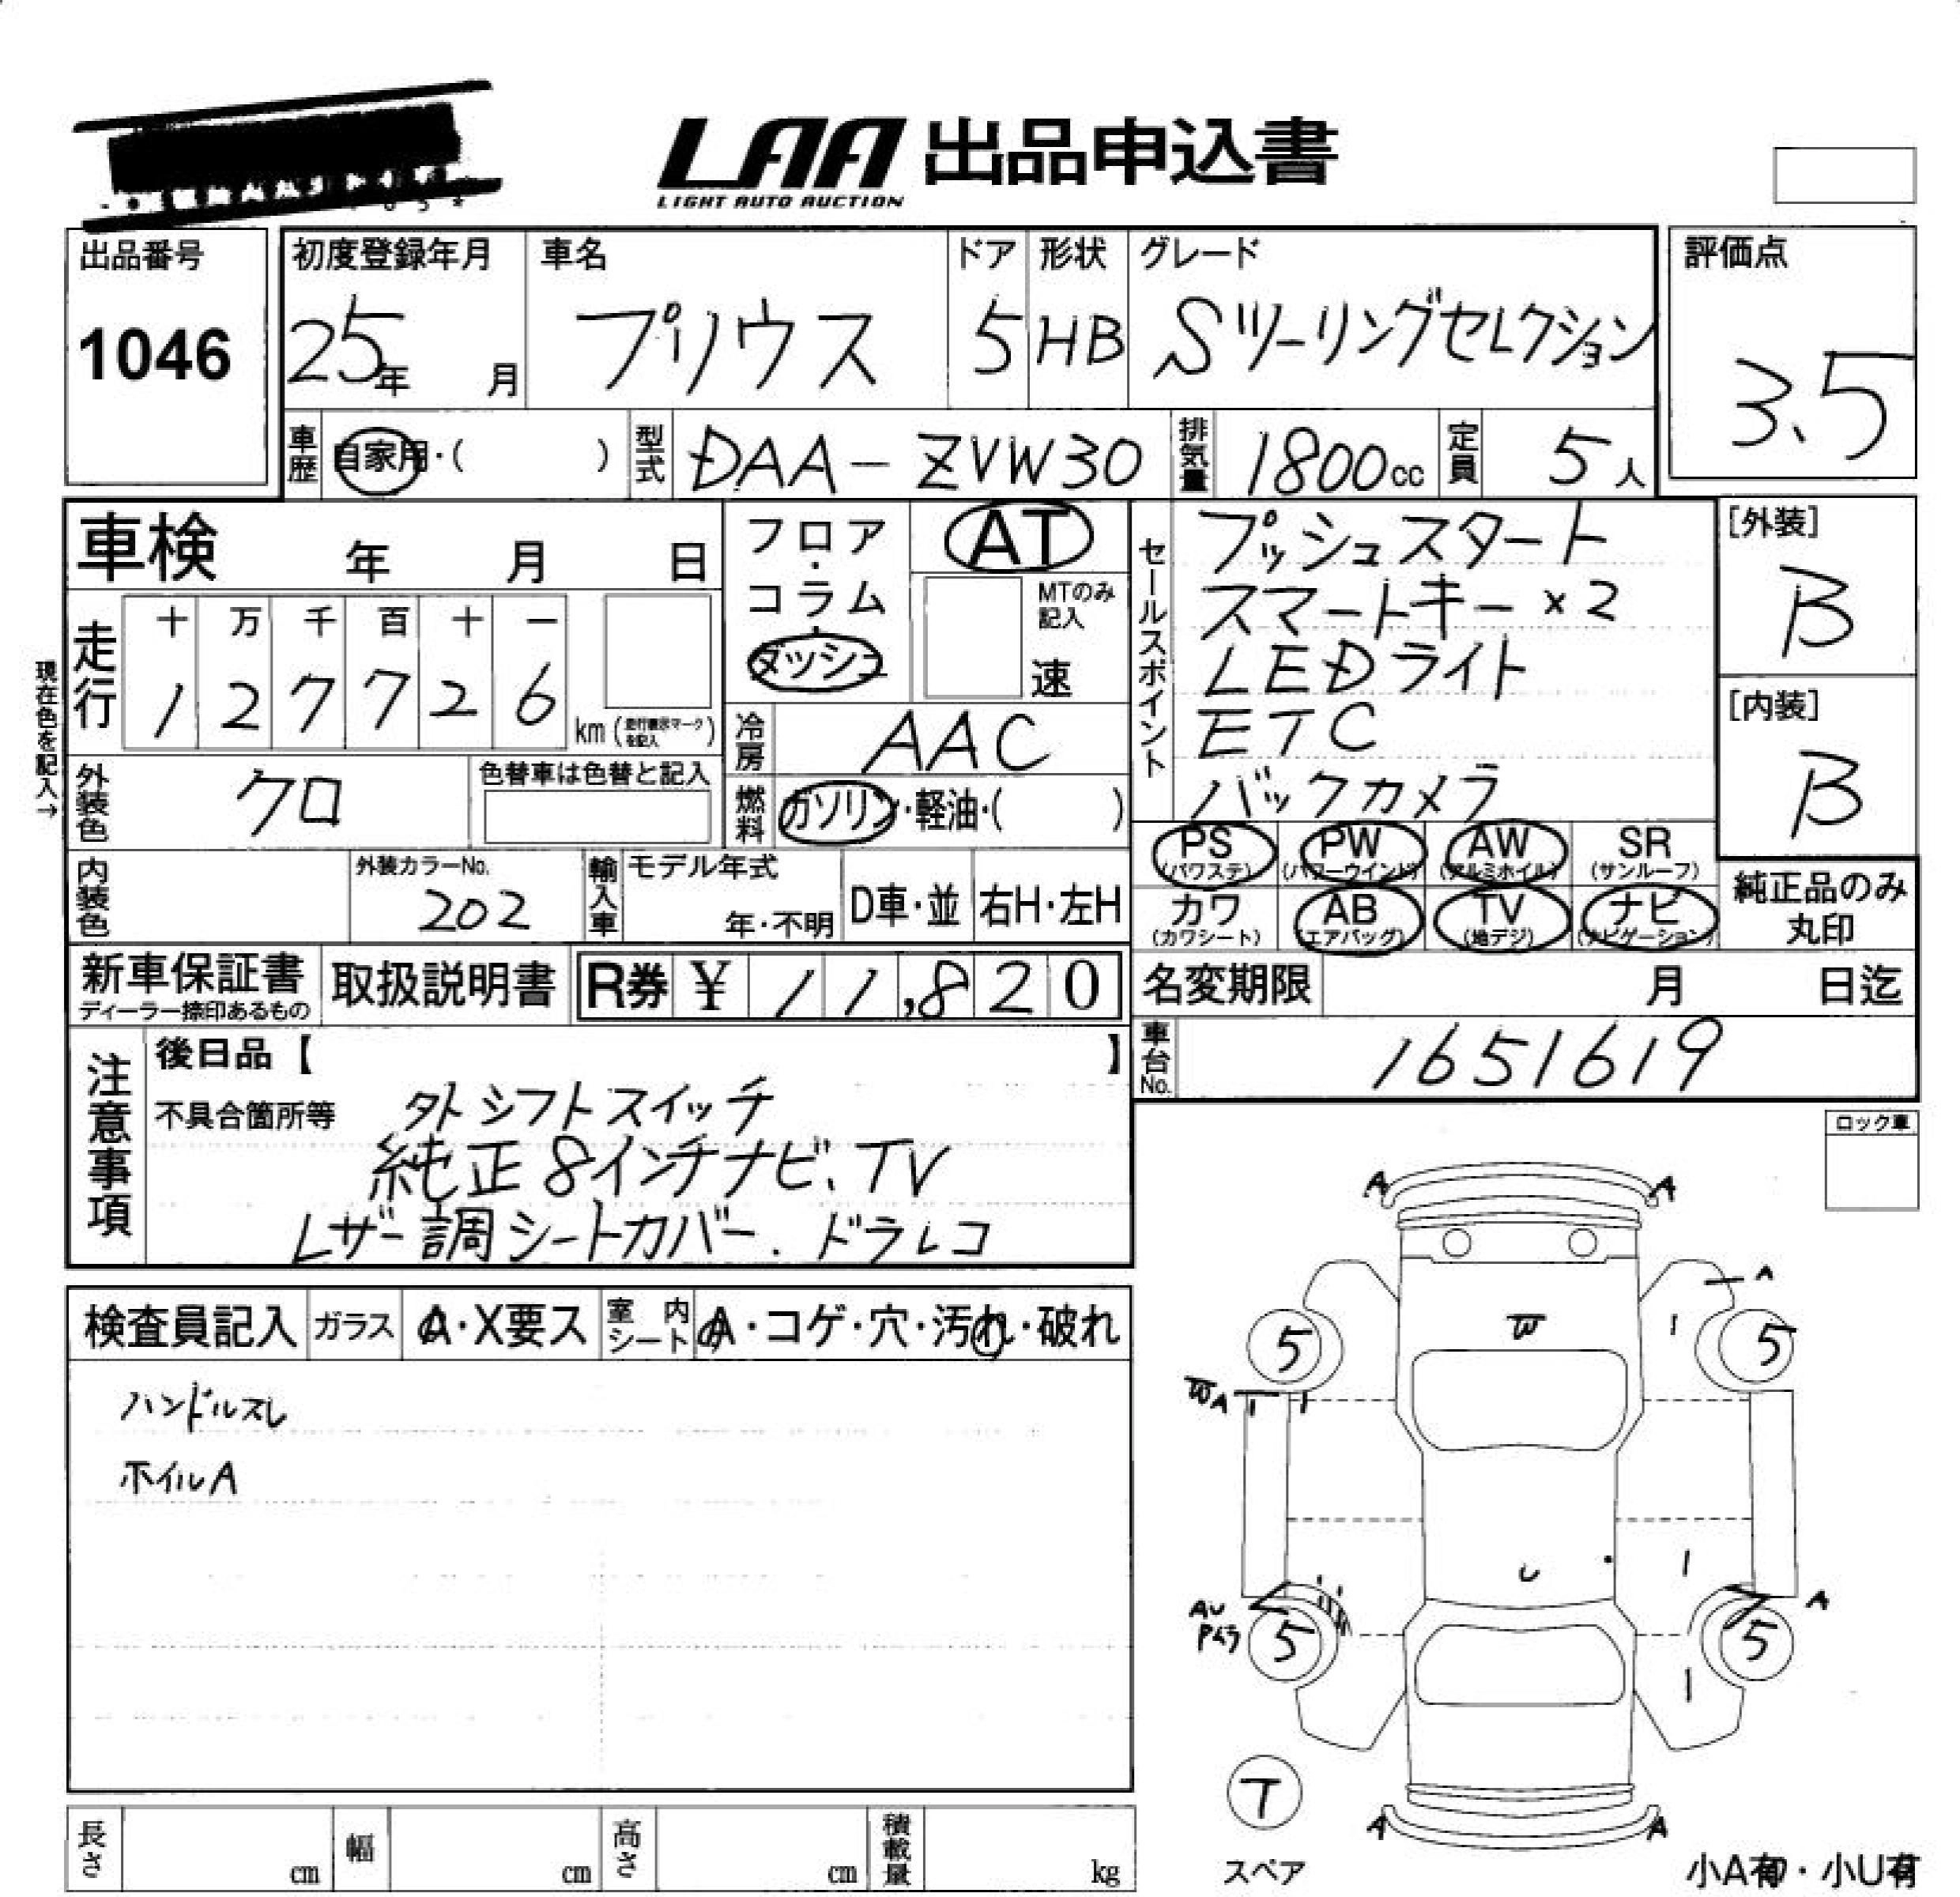 LAA 出品申込書
LIGHT AUTO AUCTION
出品番号
1046
初度登録年月
25年 月
車名
プリウス
ドア
5
形状
HB
グレード
Sツーリングセレクション
評価点
3.5
車歴 自家用・( )
型式 DAA-ZVW30
排気量 1800cc
定員 5人
車検 年 月 日
フロア・コラム・ダッシュ
AT
MTのみ記入
速
現在色を記入→
走行
十 万 千 百 十 一
1 2 7 7 2 6
km (走行表示マークを記入)
冷房 AAC
外装色 クロ
色替車は色替と記入
燃料 ガソリン・軽油・( )
セールスポイント
プッシュスタート
スマートキー×2
LEDライト
ETC
バックカメラ
[外装]
B
[内装]
B
PS (パワステ)
PW (パワーウインド)
AW (アルミホイル)
SR (サンルーフ)
カワ (カワシート)
AB (エアバッグ)
TV (地デジ)
ナビ (ナビゲーション)
純正品のみ
丸印
内装色
外装カラーNo.
202
輸入車
モデル年式
年・不明
D車・並
右H・左H
新車保証書
ディーラー捺印あるもの
取扱説明書
R券 ¥ 11,820
名変期限 月 日迄
車台No. 1651619
注意事項
後日品【 】
不具合箇所等
外シフトスイッチ
純正8インチナビ、TV
レザー調シートカバー. ドラレコ
ロック車
検査員記入
ガラス A・X要ス
室内シート A・コゲ・穴・汚れ・破れ
ハンドルスレ
ホイルA
A A
A
W
5 5
WA
U
AU
A
5 5
T
スペア
A A
小A有・小U有
長さ cm
幅 cm
高さ cm
積載量 kg